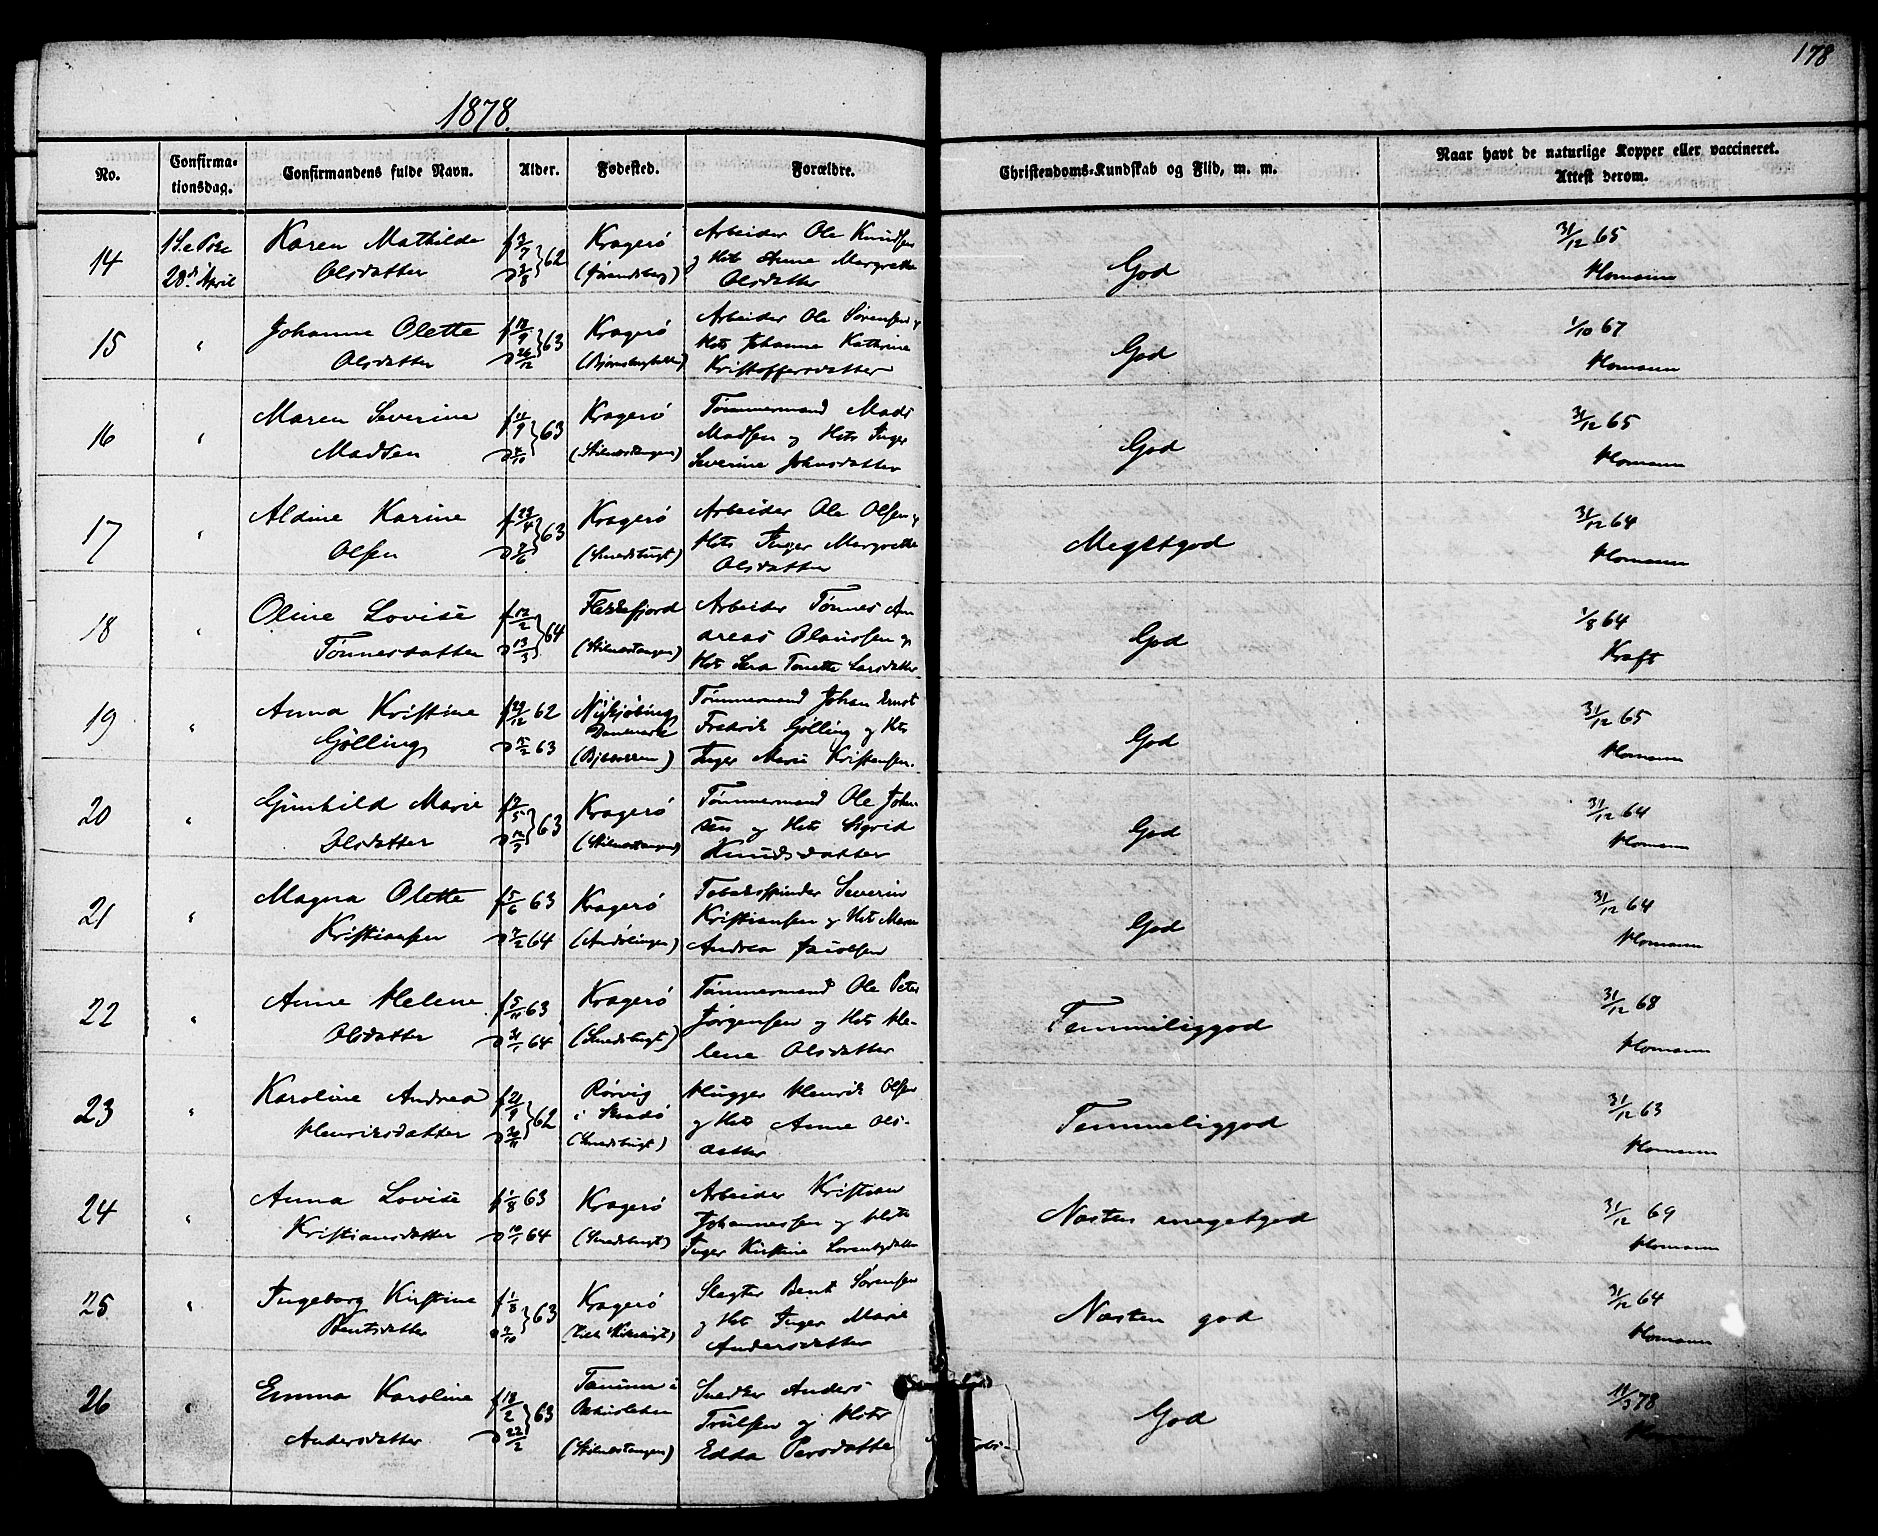 178
1878.
No.
Confirma-
tionsdag.
Confirmandens fulde Navn.
Alder.
Fødested.
Forældre.
Christendoms-Kundskab og Flid, m. m.
Naar havt de naturlige Kopper eller vaccineret.
Attest derom.
14
28d April
Karen Mathilde
Olsdatter
62
Kragerø
Arbeider Ole Knudsen
og Hst Anne Margrethe
Olsdatter
God
31/12 65
Homann
15
"
Johanne Olette
Olsdatter
63
Kragerø
Arbeider Ole Sørensen og
Hst Johanne Kathrine
Kristoffersdatter
God
1/10 67
Homann
16
"
Maren Severine
Madsen
63
Kragerø
Tømmermand Mads
Madsen og Hst Inger
Severine Johnsdatter
God
31/12 65
Homann
17
"
Aldine Karine
Olsen
63
Kragerø
(Smedsbugt)
Arbeider Ole Olsen og
Hst Inger Margrethe
Olsdatter
Megetgod
31/12 64
Homann
18
"
Oline Lovise
Tønnesdatter
f 12/2
d 13/3
64
Flekkefjord
(Stilnestangen)
Arbeider Tønnes An
dreas Olaussen og
Hst Sera Tonette Larsdatter
God
1/8 64
Kraft
19
"
Anna Kristine
Gölling
f 29/12 62
63
Nykjøbing
Danmark
Tømmermand Johan Ernst
Fredrik Gölling og Hst
Inger Marie Kristensen.
God
31/12 65
Homann
20
"
Gunhild Marie
Olsdatter
63
Kragerø
(Stilnestangen)
Tømmermand Ole John-
sen og Hst Sigrid
Knudsdatter
God
31/12 64
Homann
21
"
Magna Olette
Kristiansen
f 5/6 63
d 7/2 64
Kragerø
Tobaksspinder Severin
Kristiansen og Hst Maren
Andrea
God
31/12 64
Homann
22
"
Anne Helene
Olsdatter
63
64
Kragerø
(Smedsbugt)
Tømmermand Ole Peter
Jørgensen og Hst He-
lene Olsdatter
Temmeliggod
31/12 68
Homann
23
"
Karoline Andrea
Henriksdatter
62
Rørvig
i
(Smedsbugt)
Hugger Henrik Olsen
og Hst Anne Ols-
datter
Temmeliggod
31/12 63
Homann
24
"
Anna Lovise
Kristiansdatter
f 1/8 63
d 10/1 64
Kragerø
(Smedsbugt)
Arbeider Kristian
Johannessen og Hst
Inger Kirstine Lorentzdatter
Næsten megetgod
31/12 69
Homann
25
"
Ingeborg Kirstine
Bentsdatter
f 1/8
63
Kragerø
Slagter Bent Sørensen
og Hst Inger Marie
Andersdatter
Næsten god
31/12 64
Homann
26
"
Emma Karoline
Andersdatter
f 18/2
d 22/2
63
Tanum i
(Stilnestangen)
Snedker Anders
Trulsen og Hst
Edda Persdatter
God
78